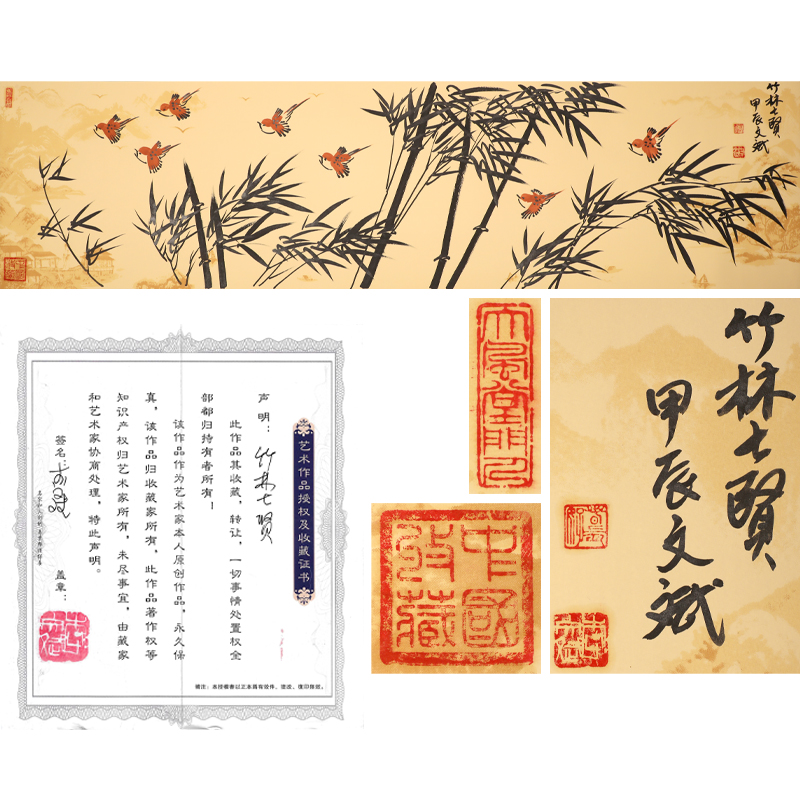 竹林七賢
甲辰文斌
艺术作品授权及收藏证书
声明：竹林七賢
此作品其收藏，转让，一切事情处置权全
部都归持有者所有！
该作品作为艺术家本人原创作品，永久保
真，该作品归收藏家所有，此作品著作权等
知识产权归艺术家所有，未尽事宜，由藏家
和艺术家协商处理，特此声明。
签名：
盖章：
大風堂
中國
收藏
竹林七賢
甲辰文斌